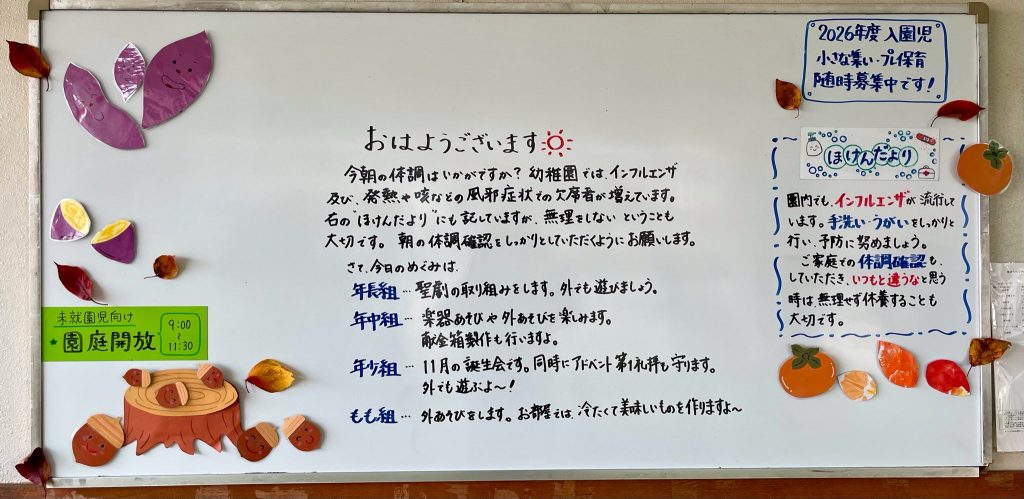 おはようございます
今朝の体調はいかがですか？幼稚園では、インフルエンザ
及び、発熱や咳などの風邪症状での欠席者が増えています。
右の"ほけんだより"にも記していますが、無理をしないということも
大切です。朝の体調確認をしっかりとしていただくようにお願いします。
さて、今日のめぐみは、
年長組…聖劇の取り組みをします。外でも遊びましょう。
年中組…楽器あそびや外あそびを楽しみます。
献金箱製作も行いますよ。
年少組…11月の誕生会です。同時にアドベント第1礼拝も守ります。
外でも遊ぶよ〜！
もも組…外あそびをします。お部屋では、冷たくて美味しいものを作りますよ〜
未就園児向け
園庭開放
9:00
〜
11:30
2026年度入園児
小さな集い・プレ保育
随時募集中です！
ほけんだより
園内でも、インフルエンザが流行して
います。手洗い・うがいをしっかりと
行い、予防に努めましょう。
ご家庭での体調確認も、
していただき、いつもと違うなと思う
時は無理せず休養することも
大切です。